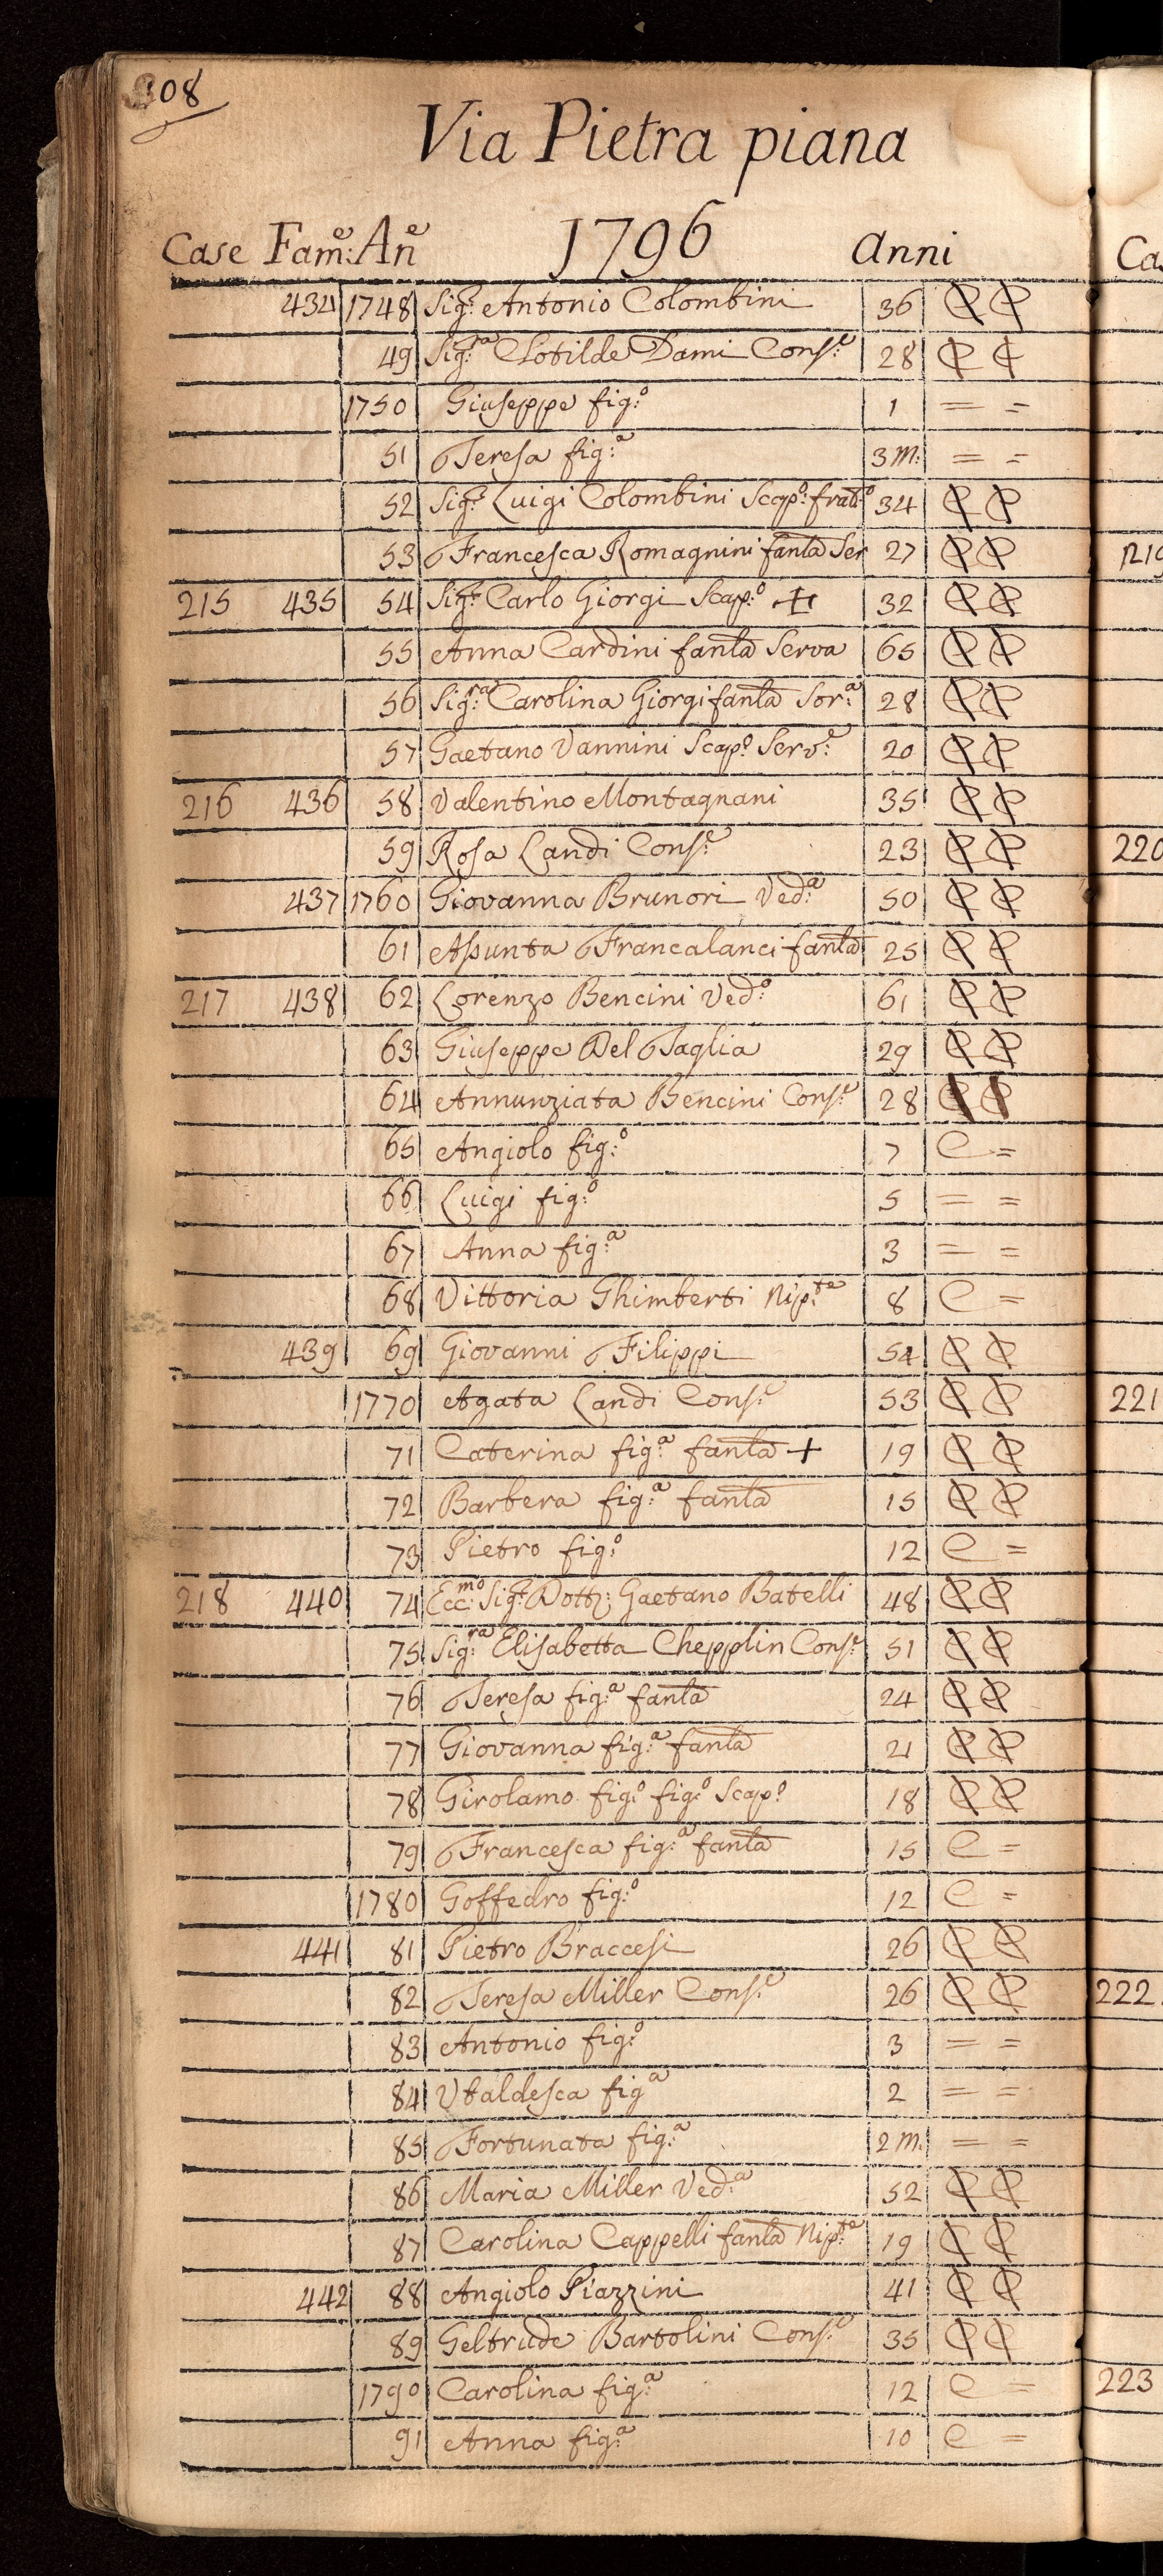 308
Via Pietra piana
1796
Case Fam:e An:e Anni
434 1748 Sig:r Antonio Colombini 36 C C
49 Sig:ra Clotilde Dami Cons:e 28 C C
1750 Giuseppe fig:o 1 = =
51 Teresa fig:a 3 m: = =
52 Sig:r Luigi Colombini Scap:o frat:o 34 C C
53 Francesca Romagnini fanla Ser 27 C C
215 435 54 Sig:r Carlo Giorgi Scap:o + 32 C C
55 Anna Cardini fanla Serva 65 C C
56 Sig:ra Carolina Giorgi fanla Sor:a 28 C C
57 Gaetano Vannini Scap:o Serv:e 20 C C
216 436 58 Valentino Montagnani 35 C C
59 Rosa Landi Cons:e 23 C C
437 1760 Giovanna Brunori Ved:a 50 C C
61 Assunta Francalanci fanla 25 C C
217 438 62 Lorenzo Bencini Ved:o 61 C C
63 Giuseppe Del Taglia 29 C C
64 Annunziata Bencini Cons:e 28 C C
65 Angiolo fig:o 7 C =
66 Luigi fig:o 5 = =
67 Anna fig:a 3 = =
68 Vittoria Ghimberti Nip:te 8 C =
439 69 Giovanni Filippi 54 C C
1770 Agata Landi Cons:e 53 C C
71 Caterina fig:a fanla + 19 C C
72 Barbera fig:a fanla 15 C C
73 Pietro fig:o 12 C =
218 440 74 Ecc:mo Sig:r Dott: Gaetano Batelli 48 C C
75 Sig:ra Elisabetta Chepplin Cons:e 51 C C
76 Teresa fig:a fanla 24 C C
77 Giovanna fig:a fanla 21 C C
78 Girolamo fig:o fig:o Scap:o 18 C C
79 Francesca fig:a fanla 15 C =
1780 Goffedro fig:o 12 C =
441 81 Pietro Braccesi 26 C C
82 Teresa Miller Cons:e 26 C C
83 Antonio fig:o 3 = =
84 Vbaldesca fig:a 2 = =
85 Fortunata fig:a 2 m: = =
86 Maria Miller Ved:a 52 C C
87 Carolina Cappelli fanla Nip:te 19 C C
442 88 Angiolo Piazzini 41 C C
89 Geltrude Bartolini Cons:e 35 C C
1790 Carolina fig:a 12 C =
91 Anna fig:a 10 C =
Ca
219
220
221
222
223